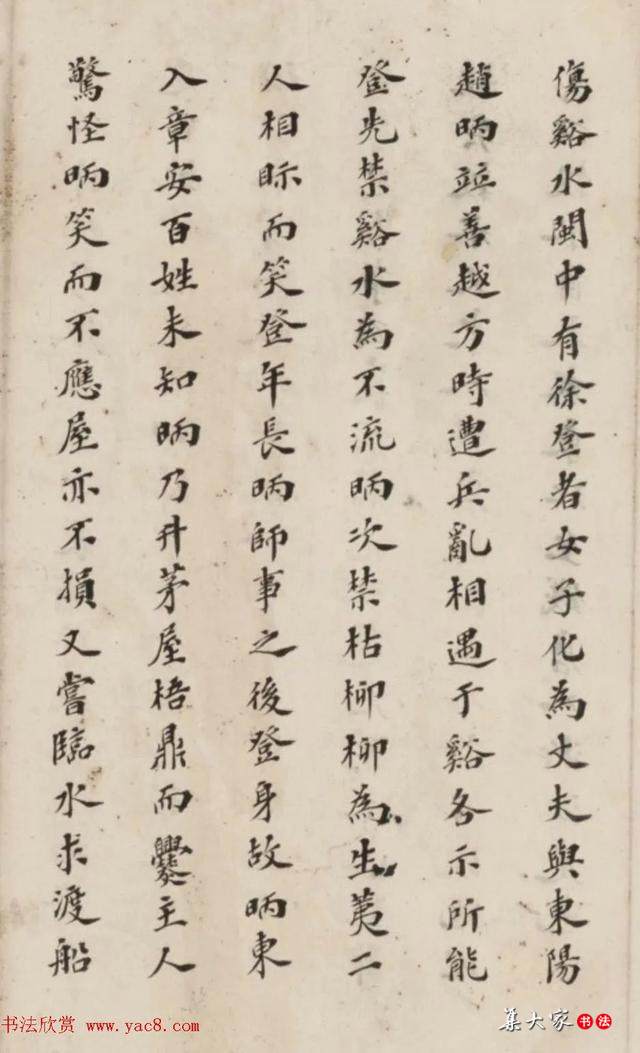 傷谿水閩中有徐登者女子化為丈夫與東陽
趙昞竝善越方時遭兵亂相遇于谿各示所能
登先禁谿水為不流昞次禁枯柳柳為生荑二
人相眎而笑登年長昞師事之後登身故昞東
入章安百姓未知昞乃升茅屋梧鼎而爨主人
驚怪昞笑而不應屋亦不損又嘗臨水求渡船
书法欣赏 www.yac8.com
集大家书法